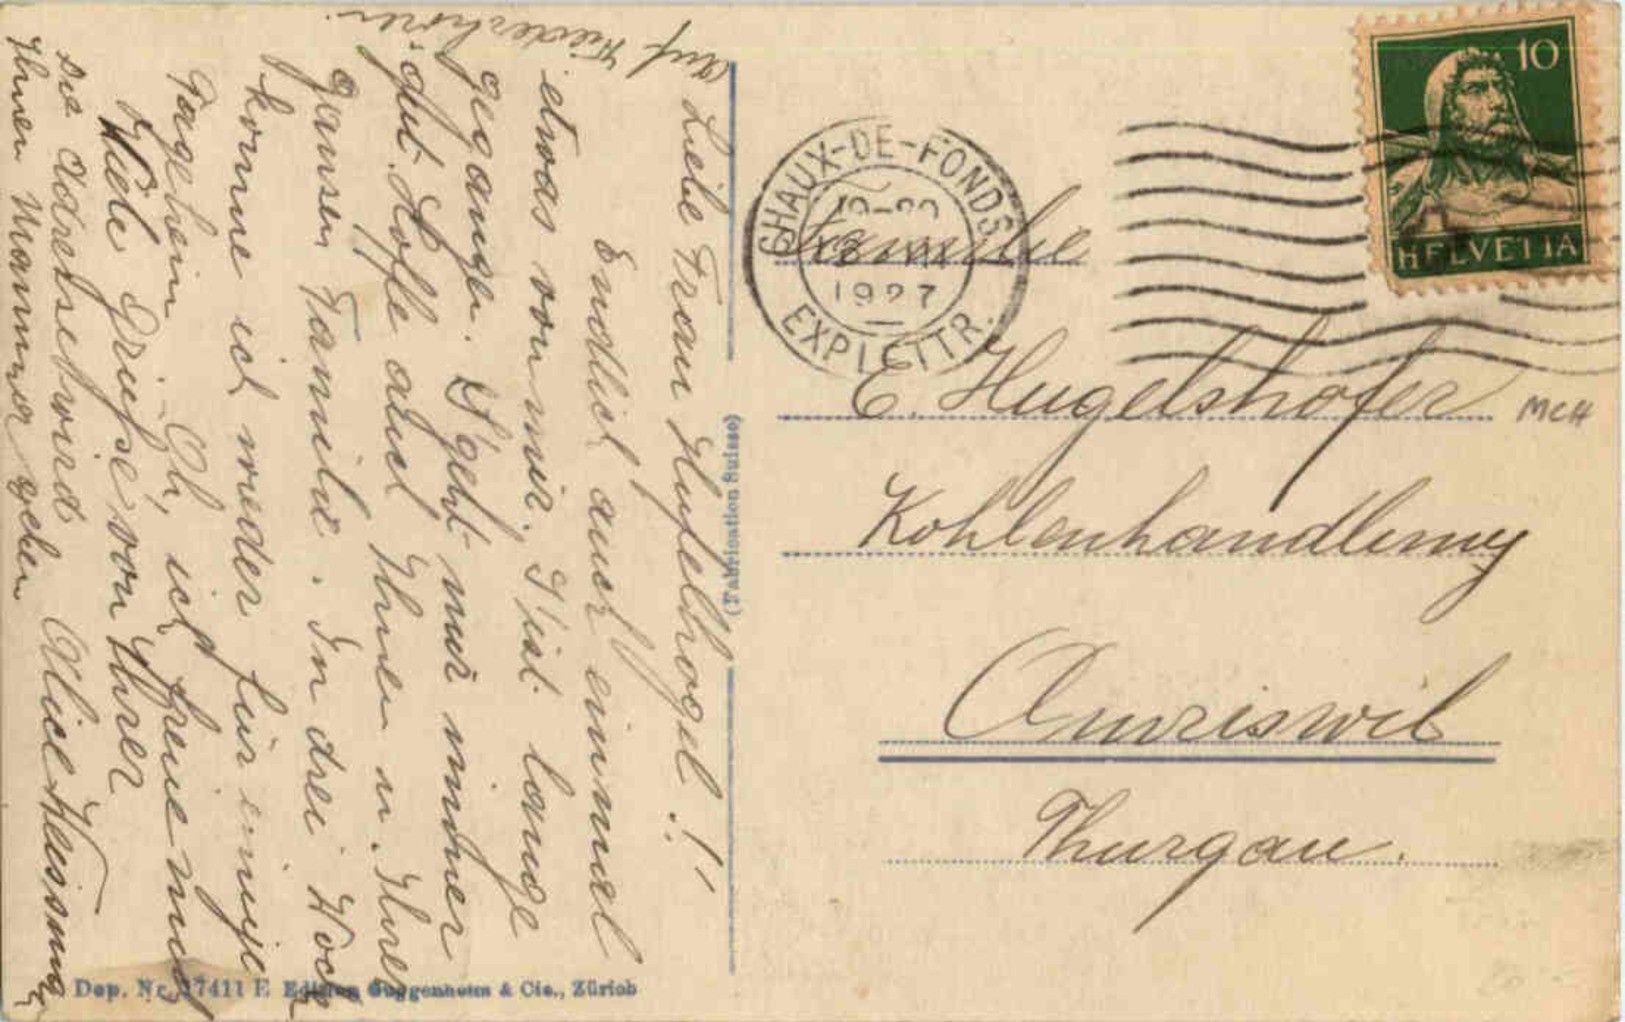 Liebe Frau Hugelshofel!!
Endlich auch einmal
etwas von mir. S'ist lange
gegangen. S'geht mir immer
gut. Hoffe auch Ihnen u. Ihrer
ganzen Familie. In drei Woch
komme ich wieder für einige
Tage heim. Oh, ich freue mich
Viele Grüsse von Ihrer
Alice
Die Adresse wird
Ihnen Mamma geben
auf Wiederhören.
(Fabrication Suisse)
Dep. Nr. 17411 E Edition Guggenheim & Cie., Zürich
CHAUX-DE-FONDS
1927
EXP. LETTR.
10
HELVETIA
Familie
E. Hugelshofer
MCH
Kohlenhandlung
Amriswil
Thurgau.